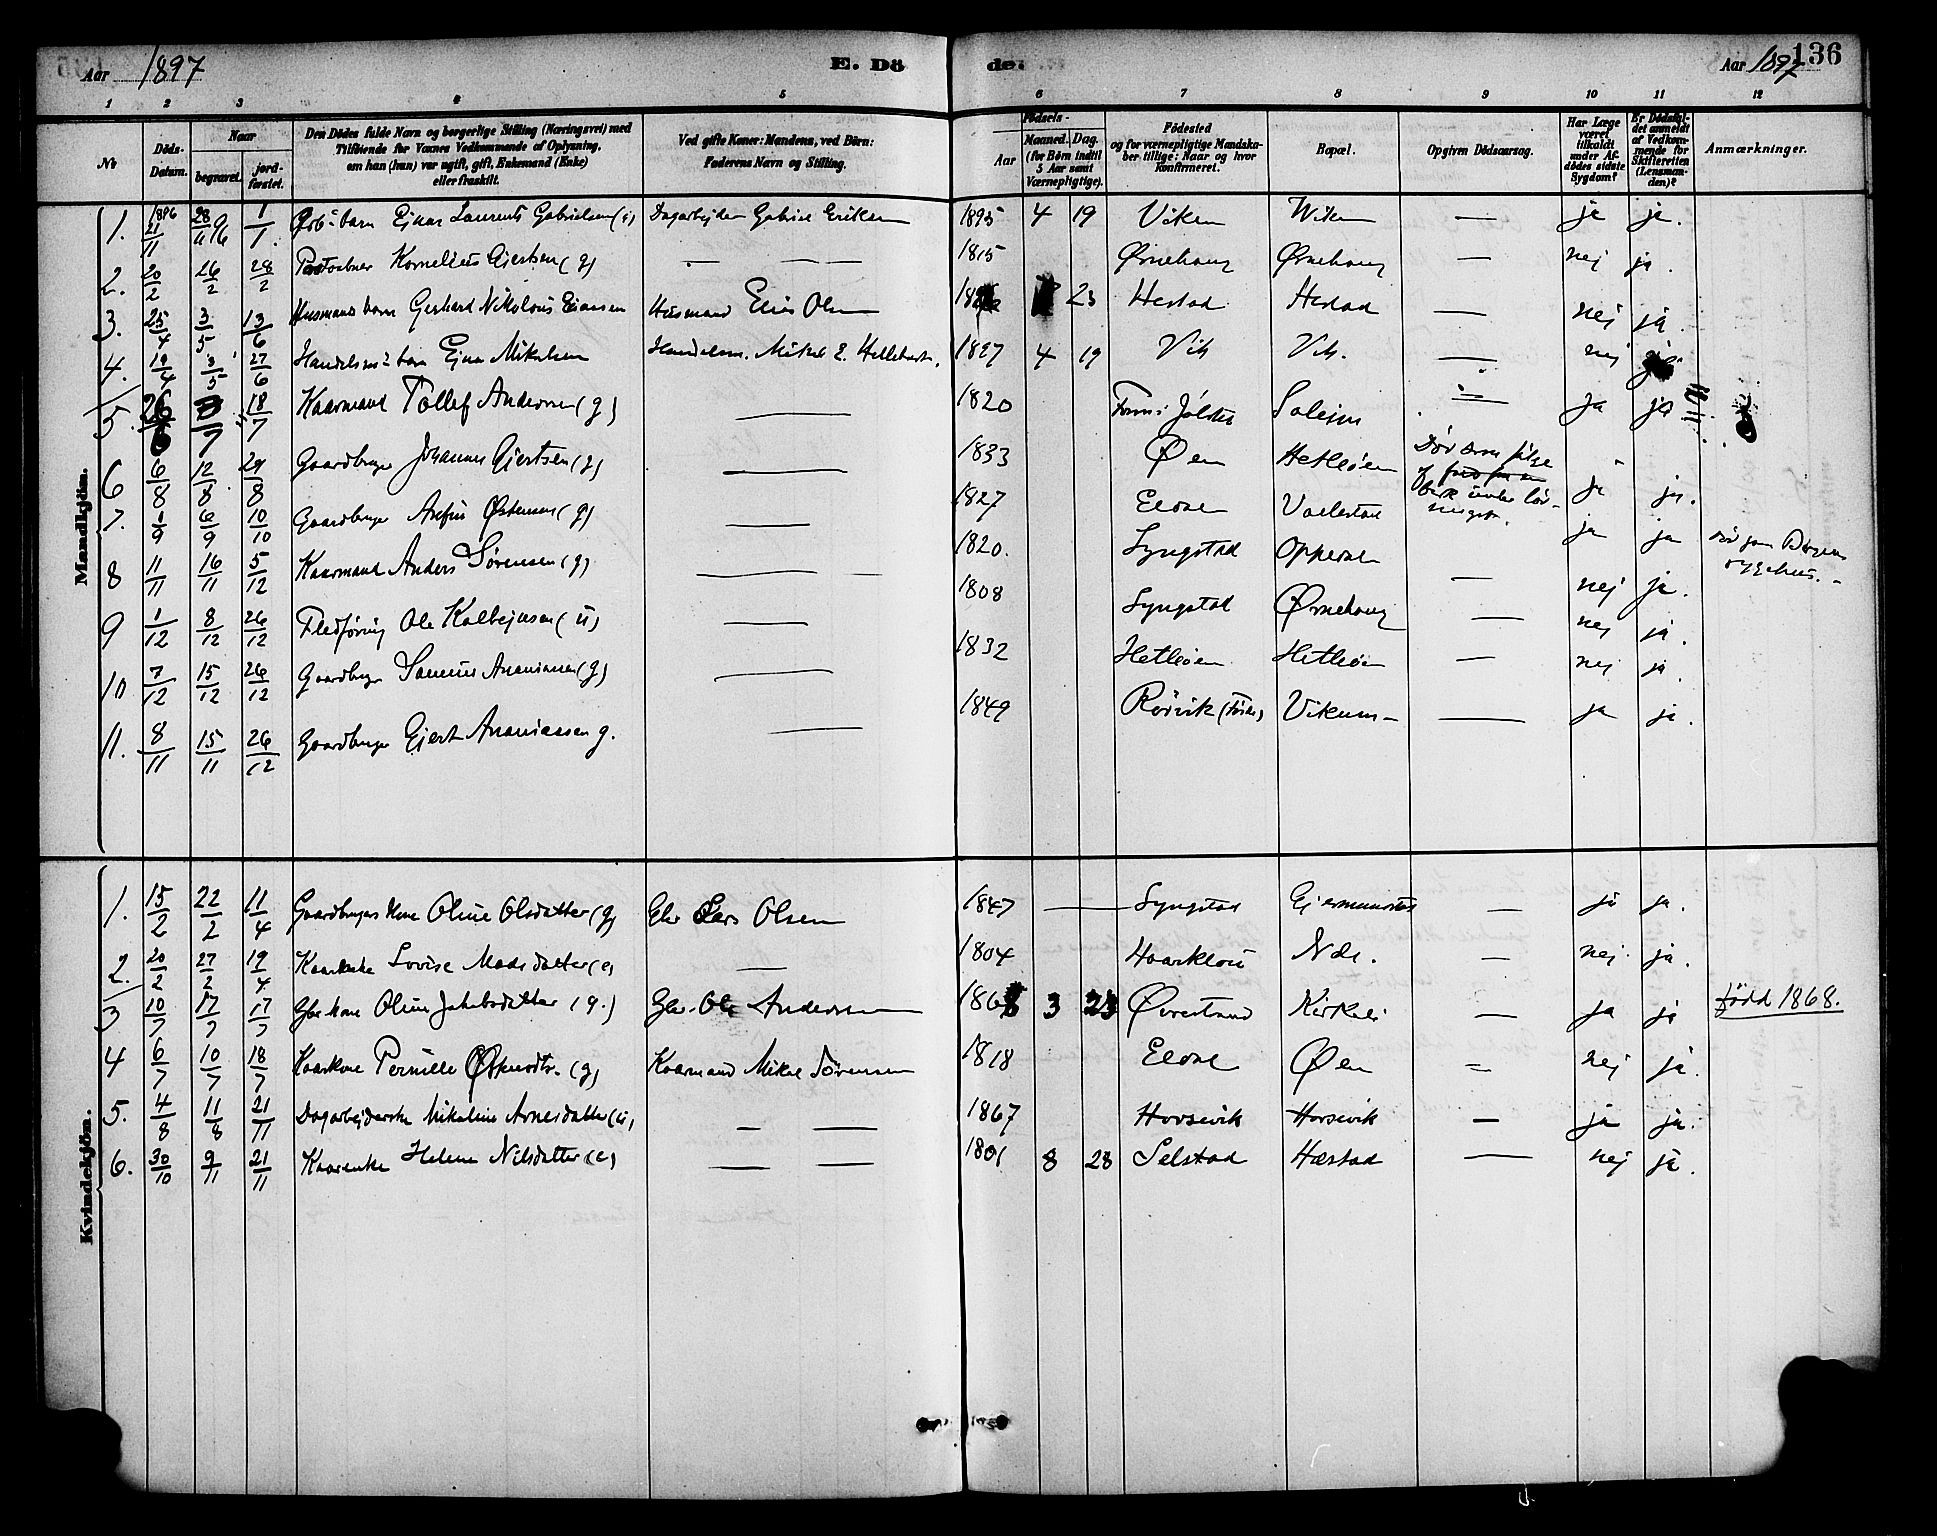 Aar 1897 E. Dö
de: Aar 1897 136
1 2 3 4 5 6 7 8 9 10 11 12
No
Döds-Datum.
Naar
begravet.
jord-fæstet.
Den Dödes fulde Navn og borgerlige Stilling (Næringsvei) med
Tilföiende for Voxnes Vedkommende af Oplysning,
om han (hun) var ugift, gift, Enkemand (Enke)
eller fraskilt.
Ved gifte Koner: Mandens, ved Börn:
Faderens Navn og Stilling.
Födsels-
Aar
Maaned. Dag.
(for Börn indtil
5 Aar samt
Værnepligtige).
Födested
og for værnepligtige Mandska-
ber tillige: Naar og hvor
konfirmeret.
Bopæl.
Opgiven Dödsaarsag.
Har Læge
været
tilkaldt
under Af-
dödes sidste
Sygdom?
Er Dödsfal-
det anmeldt
af Vedkom-
mende for
Skifteretten
(Lensman-
den)?
Anmærkninger.
Mandkjön.
1. 1896 21/11 28/11 96 1/1. barn Ejnar Laurents Gabrielsen (u) Dagarbejder Gabriel Eriksen 1895 4 19 Viken Viken — ja ja.
2. 20/2 26/2 28/2 Kornelius Gjertsen (g) — — — 1815 Ørnehaug Ørnehaug — nej ja.
3. 25/4 3/5 13/6 Husmands barn Gerhard Nikolaus Eliassen Husmand Elias Olsen 23 Hestad Hestad — nej ja.
4. 19/4 3/5 27/6 Handelsm: barn Ejnar Mikalsen Handelsm. Mikal E. 1897 4 19 Vik Vik. — nej ja
5. 18/7 Kaarmand Tollef Andersen (g) — 1820 Jølster — ja ja
6 6/8 12/8 29/8 Gaardbruger Johannes Gjertsen (g) — 1833 Øen Hetleøen Død som følge af ja ja.
7. 1/9 6/9 10/10 Gaardbruger Østensen (g) — 1827 Eldal Vallestad ja ja
8 11/11 16/11 5/12 Kaarmand Anders Sørensen (g) — — 1820. Lyngstad Oppedal — nej ja.
9 1/12 8/12 26/12 Fledføring Ole Kolbejnsen (u) — 1808 Lyngstad Ørnehaug — nej ja.
10 7/12 15/12 26/12 Gaardbruger Ananiassen (g) — 1832 Hetleøen Hetleøen — nej ja.
11. 8/11 15/11 26/12 Gaardbruger Gjert Ananiassen g. — 1849 Rørvik (Førde) — ja ja.
Kvindekjön.
1. 15/2 22/2 11/4 Gaardbrugers Kone Oline Olsdatter (g) Gbr Lars Olsen 1847 — Lyngstad Gjermundstad — ja ja.
2. 20/2 27/2 19/4 Kaarenke Lovise Madsdatter (e) — 1804 — nej. ja.
3 10/7 17/7 17/7 Gbr kone Oline Jakobsdatter (g.) Gbr. Ole Andersen 1868 3 23 Øvrestrand — ja ja född 1868.
4 6/7 10/7 18/7 Kaarkone Pernille Østensdtr. (g) Kaarmand Mikal Sørensen 1818 Eldal Øen — nej ja.
5. 4/8 11/8 21/11 Dagarbejderske Nikoline Arnesdatter (u) — — 1867 Horsevik Horsevik — ja ja.
6. 30/10 9/11 21/11 Kaarenke Helene Nilsdatter (e) — — 1801 8 28 Selstad Hæstad — nej ja.